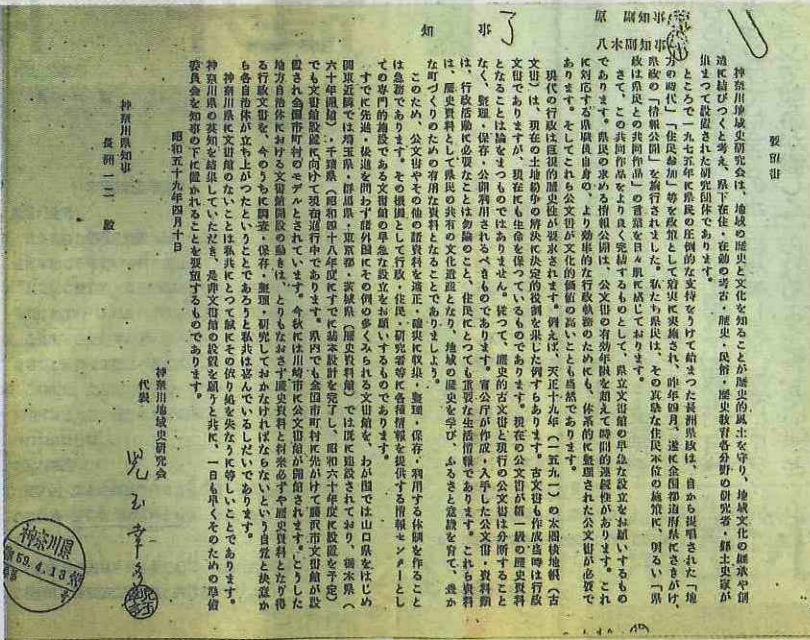 要望書
神奈川地域史研究会は、地域の歴史と文化を知ることが歴史的風土を守り、地域文化の継承や創
造に結びつくと考え、県下在住・在勤の考古・歴史・民俗・歴史教育各分野の研究者・郷土史家が
集まって設置された研究団体であります。
ところで一九七五年に県民の圧倒的な支持をうけて始まった長洲県政は、自から提唱された「地
方の時代」「住民参加」等を政策として着実に実施され、昨年四月、遂に全国都道府県にさきがけ、
県政の「情報公開」を施行されました。私たち県民は、その真摯な住民本位の施策に、明るい「県
政は県民との共同作品」の言葉を日々肌に感じております。
さて、この共同作品をより良く完結するものとして、県立文書館の早急な設立をお願いするもの
であります。県民の求める情報公開は、公文書の有効年限を超えて時間的連続性があります。これ
に対応する県職員自身の、より効率的な行政執務のためにも、体系的に整理された公文書が必要で
あります。そしてこれら公文書が文化的価値の高いことも当然であります。
現代の行政は巨視的歴史性が要求されます。例えば、天正十九年（一五九一）の太閤検地帳（古
文書）は、現在の土地紛争の解決に決定的役割を果した例すらあります。古文書も作成当時は行政
文書でありますが、現在にも生命を保っているものであります。現在の公文書が第一級の歴史資料
となることは論をまつものではありません。従って、歴史的古文書と現行の公文書は分断すること
なく、整理・保存・公開利用されるべきものであります。官公庁が作成・入手した公文書・資料類
は、行政活動に必要なことは勿論のこと、住民にとっても重要な生活情報であります。これら資料
は、歴史資料として県民の共有の文化遺産となり、地域の歴史を学び、ふるさと意識を育て、豊か
な町づくりのための有用な資料となることでありましょう。
このため、公文書やその他の諸資料を適正・確実に収集・整理・保存・利用する体制を作ること
は急務であります。その機関として行政・住民・研究者等に各種情報を提供する情報センターとし
ての専門的施設である文書館の早急な設立をお願いするものであります。
すでに先進・後進を問わず諸外国にその例の多くみられる文書館を、わが国では山口県をはじめ
関東近隣では埼玉県・群馬県・東京都・茨城県（歴史資料館）では既に建設されており、栃木県（
六十年開館）・千葉県（昭和四十八年度にすでに基本設計を完了し、昭和六十年度に設置を予定）
でも文書館設置に向けて現在進行中であります。県内でも全国市町村に先がけて藤沢市文書館が設
置され全国市町村のモデルとされています。今秋には川崎市に公文書館が開館されます。こうした
地方自治体における文書館開設の動きは、とりもなおさず歴史資料と将来必ずや歴史資料となり得
る行政文書を、今のうちに調査・保存・整理・研究しておかなければならないという自覚と決意か
ら各自治体が立ち上がったということであろうと私共は喜んでいるしだいであります。
神奈川県に文書館のないことは私共にとって誠にその依り処を失なうに等しいことであります。
神奈川県の英知を結集していただき、是非文書館の設置を願うと共に、一日も早くそのための準備
委員会を知事の下に置かれることを要望するものであります。
昭和五十九年四月十日
神奈川地域史研究会
代表 児玉幸多
神奈川県知事
長洲一二 殿
知事
了
副知事
副知事
神奈川県
59.4.13